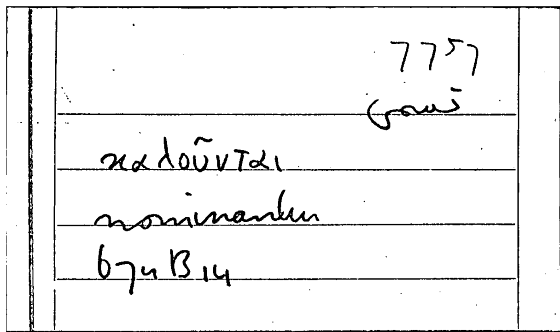 7757
καλοῦνται
nominantur
674 B 14